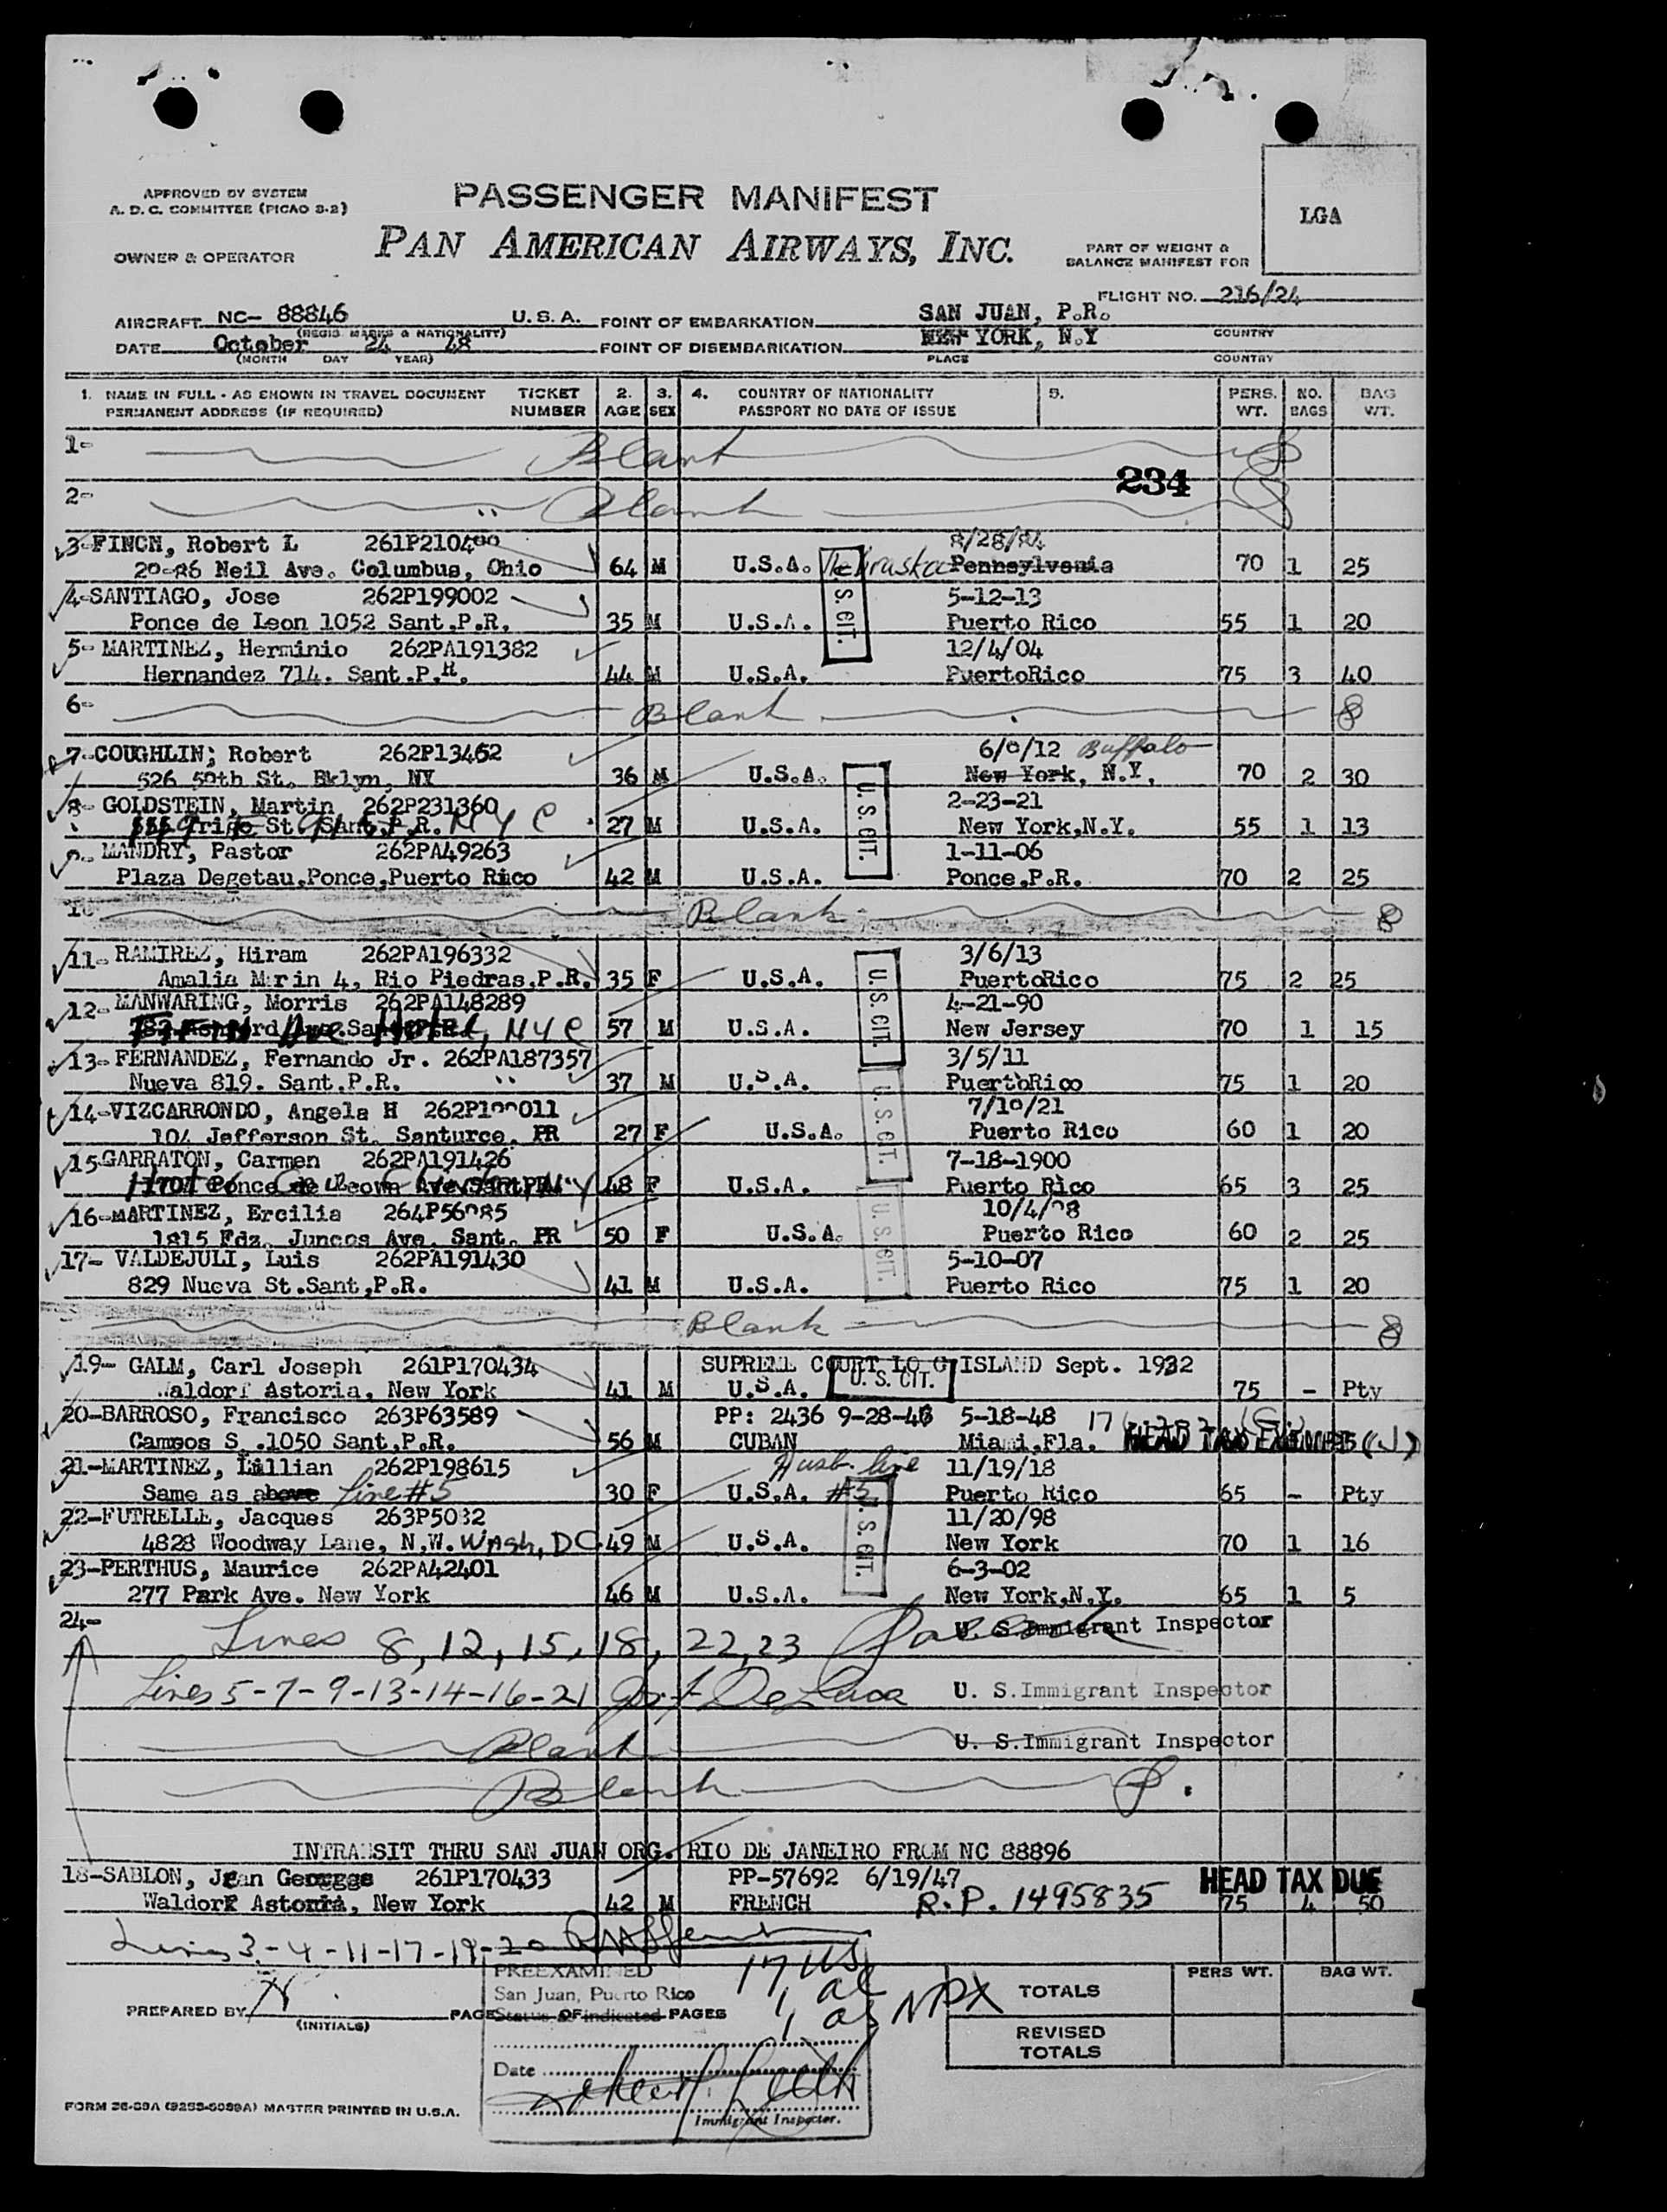 APPROVED BY SYSTEM
A. D. C. COMMITTEE (PICAO 3-2)
OWNER & OPERATOR
PASSENGER MANIFEST
PAN AMERICAN AIRWAYS, INC.
PART OF WEIGHT &
BALANCE MANIFEST FOR
LGA
FLIGHT NO. 216/24
AIRCRAFT NC- 88846 U. S. A. POINT OF EMBARKATION SAN JUAN, P.R.
(REGIS. MARKS & NATIONALITY) COUNTRY
DATE October 24 48 POINT OF DISEMBARKATION NEW YORK, N.Y
(MONTH DAY YEAR) PLACE COUNTRY
1. NAME IN FULL - AS SHOWN IN TRAVEL DOCUMENT TICKET 2. 3. 4. COUNTRY OF NATIONALITY 5. PERS. NO. BAG
PERMANENT ADDRESS (IF REQUIRED) NUMBER AGE SEX PASSPORT NO DATE OF ISSUE WT. BAGS WT.
1- Blank
234
2- Blank
3-FINCH, Robert L 261P210400 8/28/84
20-86 Neil Ave. Columbus, Ohio 64 M U.S.A. Nebraska Pennsylvania 70 1 25
4-SANTIAGO, Jose 262P199002 5-12-13
Ponce de Leon 1052 Sant.P.R. 35 M U.S.A. Puerto Rico 55 1 20
U. S. CIT.
5- MARTINEZ, Herminio 262PA191382 12/4/04
Hernandez 714. Sant.P.R. 44 M U.S.A. PuertoRico 75 3 40
6- Blank
7-COUGHLIN; Robert 262P13462 6/0/12 Buffalo
526 50th St. Bklyn, NY 36 M U.S.A. New York, N.Y. 70 2 30
8- GOLDSTEIN, Martin 262P231360 2-23-21
St. Sant.P.R. NYC 27 M U.S.A. New York,N.Y. 55 1 13
U. S. CIT.
9- MANDRY, Pastor 262PA49263 1-11-06
Plaza Degetau,Ponce,Puerto Rico 42 M U.S.A. Ponce,P.R. 70 2 25
10 Blank
11- RAMIREZ, Hiram 262PA196332 3/6/13
Amalia Marin 4, Rio Piedras,P.R. 35 F U.S.A. PuertoRico 75 2 25
U. S. CIT.
12- MANWARING, Morris 262PA148289 4-21-90
Hotel, NYC 57 M U.S.A. New Jersey 70 1 15
13- FERNANDEZ, Fernando Jr. 262PA187357 3/5/11
Nueva 819. Sant.P.R. 37 M U.S.A. PuertoRico 75 1 20
U. S. CIT.
14-VIZCARRONDO, Angela H 262P199011 7/10/21
104 Jefferson St. Santurce, PR 27 F U.S.A. Puerto Rico 60 1 20
15 GARRATON, Carmen 262PA191426 7-18-1900
Ponce de Leon Ave. 48 F U.S.A. Puerto Rico 65 3 25
16-MARTINEZ, Ercilia 264P56985 10/4/98
1815 Fdz. Juncos Ave. Sant. PR 50 F U.S.A. Puerto Rico 60 2 25
U. S. CIT.
17- VALDEJULI, Luis 262PA191430 5-10-07
829 Nueva St.Sant,P.R. 41 M U.S.A. Puerto Rico 75 1 20
Blank
19- GALM, Carl Joseph 261P170434 SUPREME COURT LONG ISLAND Sept. 1932
Waldorf Astoria, New York 41 M U.S.A. U. S. CIT. 75 - Pty
20-BARROSO, Francisco 263P63589 PP: 2436 9-28-48 5-18-48
Campos S .1050 Sant.P.R. 56 M CUBAN Miami,Fla. HEAD TAX EXEMPT
21-MARTINEZ, Lillian 262P198615 Husb. line 11/19/18
Same as above line #5 30 F U.S.A. #5 Puerto Rico 65 - Pty
U. S. CIT.
22-FUTRELLE, Jacques 263P5032 11/20/98
4828 Woodway Lane, N.W. Wash, DC. 49 M U.S.A. New York 70 1 16
23-PERTHUS, Maurice 262PA42401 6-3-02
277 Park Ave. New York 46 M U.S.A. New York,N.Y. 65 1 5
24-
Lines 8, 12, 15, 18, 22, 23 U. S.Immigrant Inspector
Lines 5-7-9-13-14-16-21 DeLuca U. S.Immigrant Inspector
Blank U. S.Immigrant Inspector
Blank
INTRANSIT THRU SAN JUAN ORG. RIO DE JANEIRO FROM NC 88896
18-SABLON, Jean Georges 261P170433 PP-57692 6/19/47 HEAD TAX DUE
Waldorf Astoria, New York 42 M FRENCH R.P. 1495835 75 4 50
Lines 3-4-11-17-19-20
PREEXAMINED
San Juan, Puerto Rico
Status indicated
17 US
1 al
1 as NPX
PREPARED BY H. PAGE OF PAGES
(INITIALS)
Date
Immigrant Inspector.
PERS WT. BAG WT.
TOTALS
REVISED
TOTALS
FORM 36-89A (9253-5089A) MASTER PRINTED IN U.S.A.